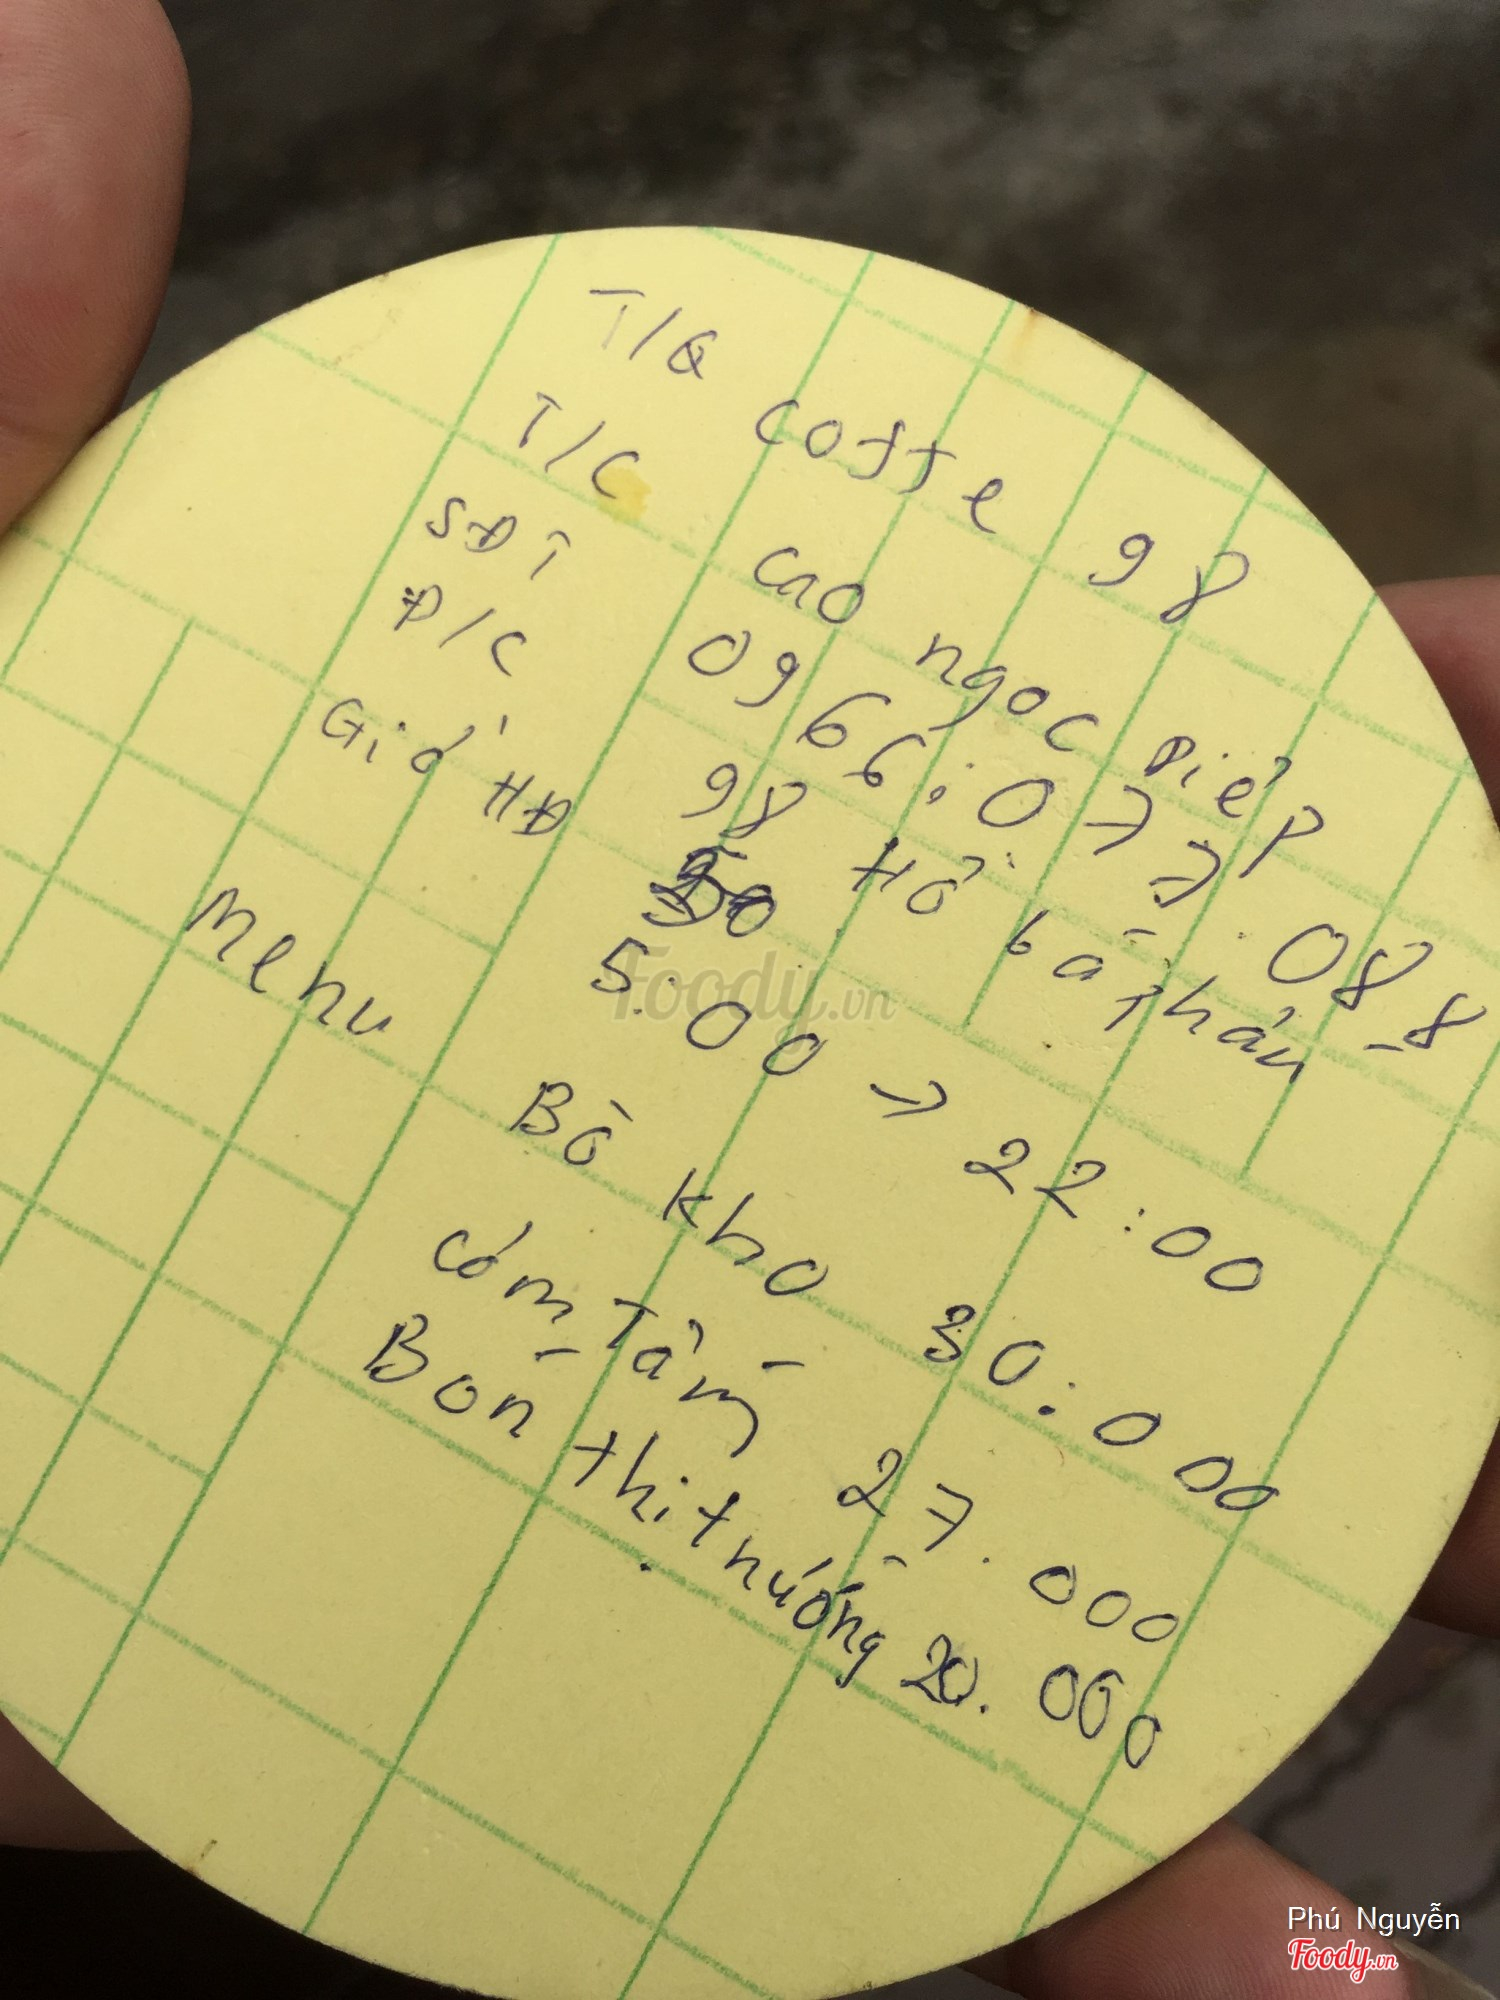 T/Q coffe 98
T/C Cao ngọc Điệp
SĐT 0966.077.088
Đ/C 98 Hồ bá Phấn
Giờ HĐ
5:00 → 22:00
Menu
Bò kho 30.000
Cơm Tấm - 27.000
Bún thịt nướng 20.000
Foody.vn
Phú Nguyễn
Foody.vn